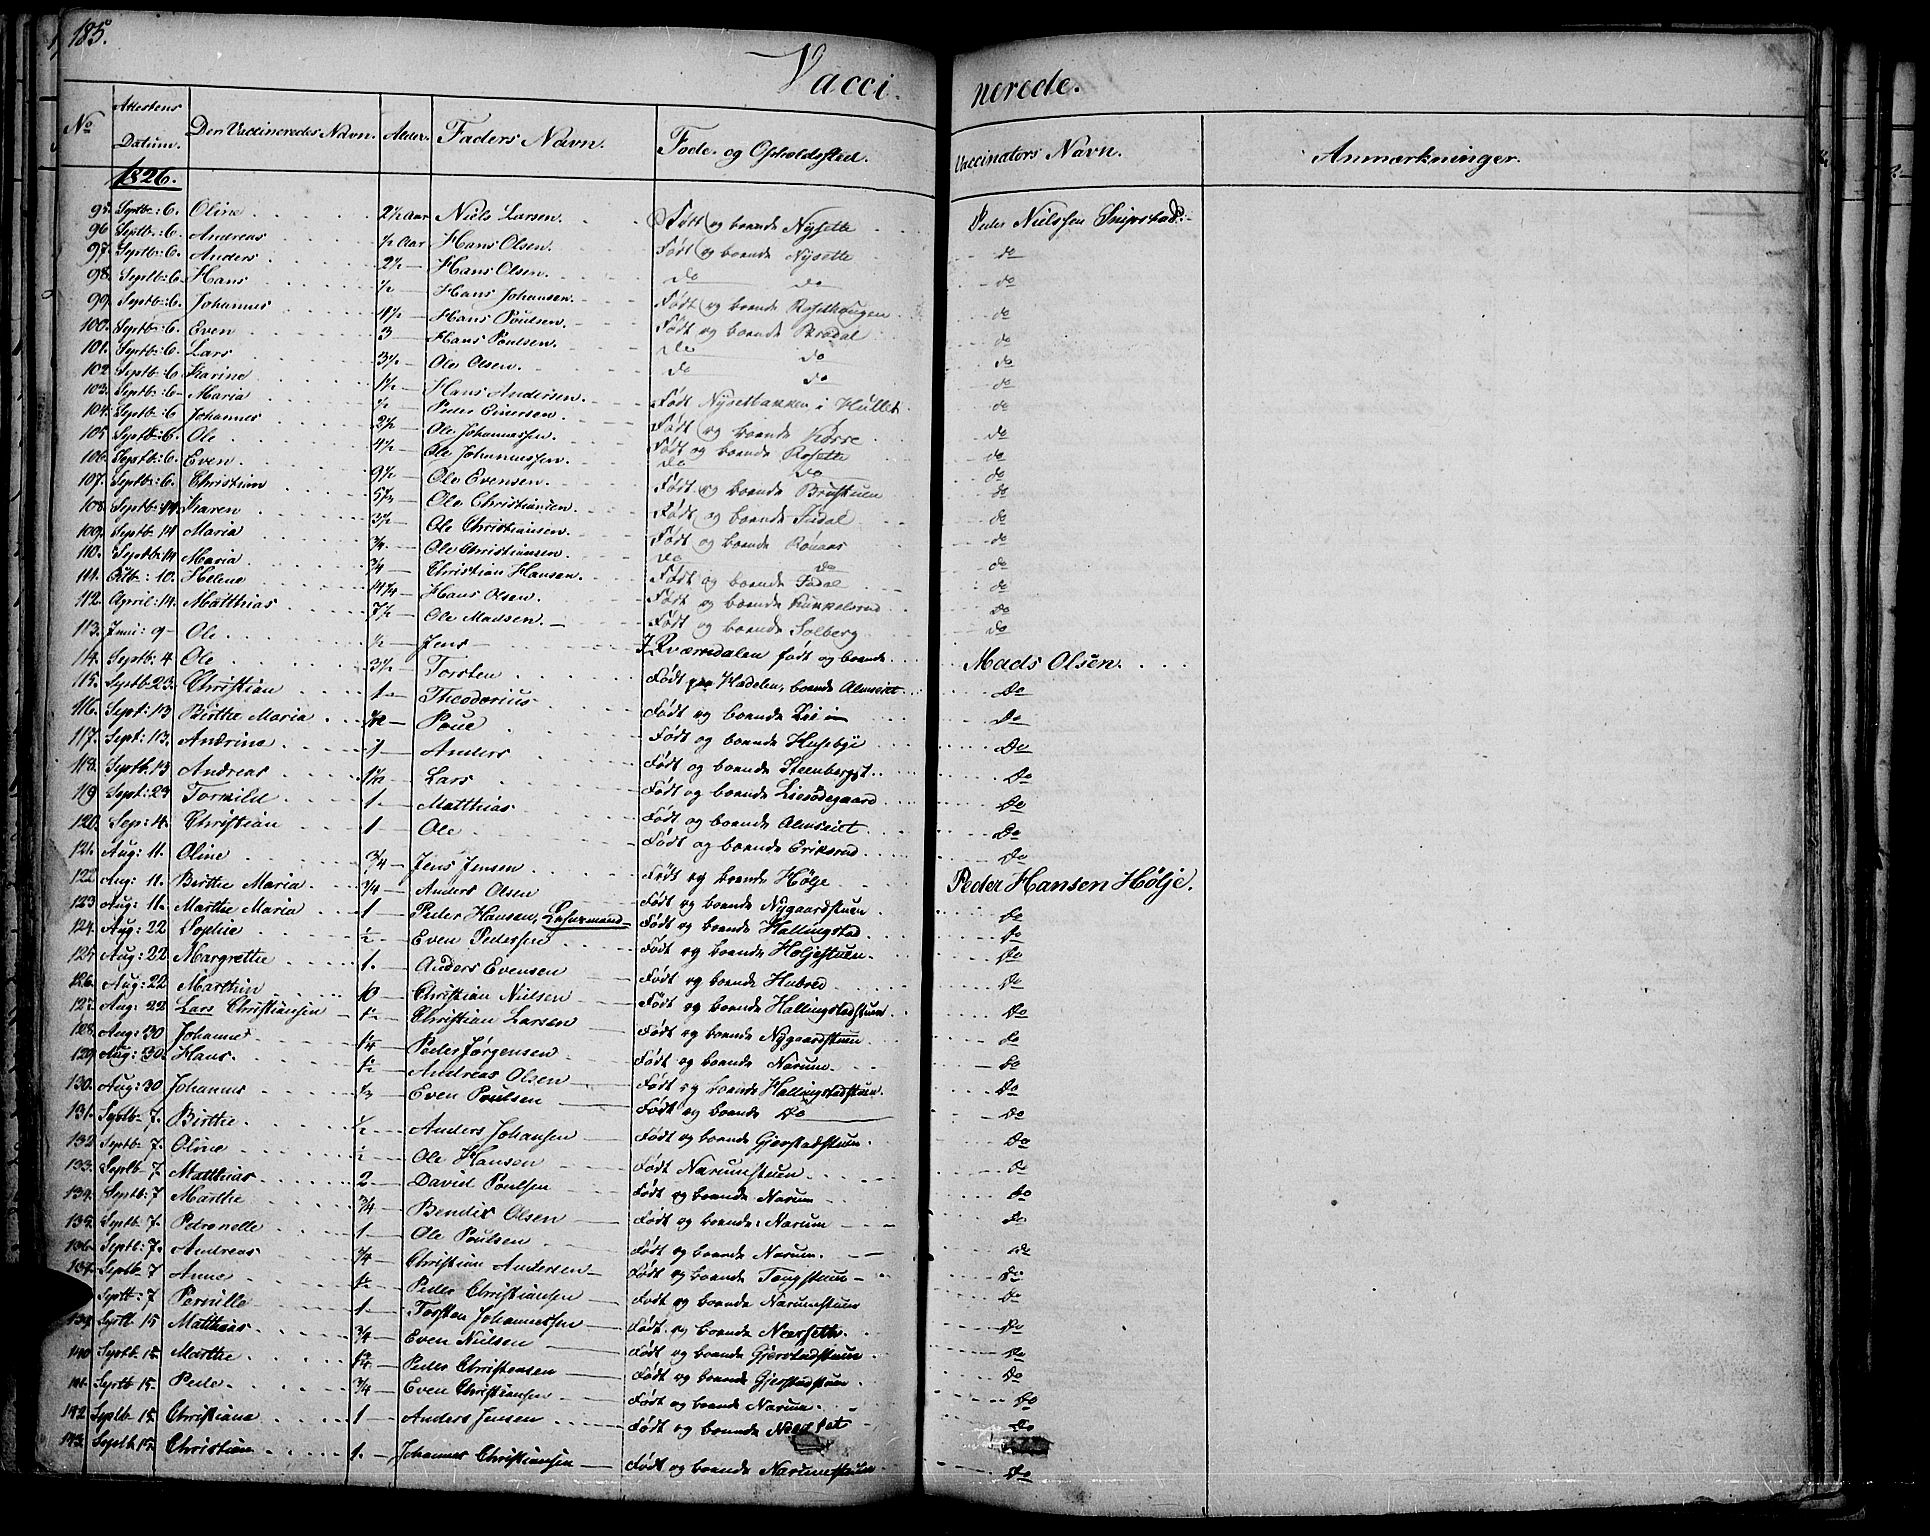 185.
Vaccinerede.
No Attestens Datum. Den Vaccineredes Navn. Alder. Faders Navn. Føde- og Opholdssted. Vaccinators Navn. Anmærkninger.
1826.
95. Septbr: 6. Oline 2½ Aar Niels Larsen. Født og boende Nysette Peder Nielssen Snipstad.
96 Septb: 6. Andreas ½ Aar Hans Olsen. Født og boende Nysette do
97. Septb: 6. Anders 2½ — Hans Olsen. do do do
98. Septb: 6. Hans ½ — Hans Johansen. Født og boende Roselhougen do
99. Septb: 6. Johannes 1½ — Hans Poulsen. Født og boende do
100. Septb: 6. Even 3 — Hans Poulsen. do do do
101. Septb: 6. Lars 3½ — Ole Olsen. do do do
102 Septb: 6 Karine 1½ — Hans Andersen. Født Nysetbakken i Hullet. do
103. Septb: 6 — Maria ½ — Peder Eiversen. Født og boende do
104. Septb: 6 Johannes 2½ — Ole Johannessen. Født og boende Rosette do
105. Septb: 6. Ole 4½ — Ole Johannessen. do do do
106. Septb: 6. Even 9½ — Ole Evensen. Født og boende Brustuen do
107. Septb: 6. Christian Ole Christiansen. Født og boende do
108. Septb: 14. Karen 3½ — Ole Christiansen. Født og boende do
109. Septb: 14 Maria ¾ — Ole Christiansen. do do do
110. Septb: 14 Maria ¾ — Christian Hansen. Født og boende do
111. Octb: 10. Helene Hans Olsen. Født og boende do
112. April: 14. Matthias 7½ — Ole Madsen. — Født og boende Solberg do
113. Juni: 9 — Ole ½ — Jens født og boende Mads Olsen.
14. Septb: 4 Ole 3½ — Torsten Født paa Hadelen, boende Almseiet Do
115. Septb: 23. Christian 1 — Theodorius Født og boende Do
116. Sept: 13 Birthe Maria Født og boende Husebye Do
117. Sept: 13. Andrine 1 — Anders Født og boende Steenberget. Do
118. Septb: 13 Andreas 1½ — Lars Født og boende Liesødegaard Do
119 Sept: 23 Tormild 1. — Matthias Født og boende Almseiet Do
120. Sep: 4. Christian 1 — Ole Født og boende Eriksrud Do
121. Aug: 11. Oline ¾ — Jens Jensen Født og boende Hølje Peder Hansen Hølje.
122 Aug: 11. Birthe Maria. ¾ — Anders Olsen Født og boende Nygaardstuen Do
123 Aug: 11. Marthe Maria 1 — Peder Hansen, Lehnsmand Født og boende Hallingstad Do
124. Aug: 22 Sophie ½ — Even Pedersen Født og boende Holjestuen. Do
125 Aug: 22 Margrethe 1. — Anders Evensen Født og boende Hubred Do
126. Aug: 22 Marthin 10 — Christian Nielsen Født og boende Hallingstadstuen Do
127. Aug: 22 Lars Christiansen Christian Larsen Født og boende Nygaardstuen do
128. Aug: 30 Johannes Peder Jørgensen Født og boende Narum. Do
129. Aug: 30. Hans. Andreas Olsen Født og boende Hallingstadstuen. Do
130. Aug: 30 Johannes Even Poulsen Født og boende Do Do
131. Septb: 7. Birthe ½ — Anders Johansen Født og boende Gjerstadstuen. Do
132 Septb: 7. Oline ½ — Ole Hansen Født Narumstuen do
133. Septb: 7 Matthias 2 — David Poulsen Født og boende Narum do
134. Septb: 7 Marthe ¾ — Bendix Olsen Født og boende Narum Do
135. Septb: 7. Petronelle 1 — Ole Poulsen Født og boende Narum. do
136. Septb: 7. Andreas ¾ — Christian Andersen Født og boende Do
137. Septb: 7 Anne Peder Christiansen Født og boende Narumstuen Do
Septb: 7 Pernille 1 — Torsten Johannessen Født og boende Do
139 Septb: 15 Matthias ¾ — Even Nielsen Født og boende Gjerstadstuen Do
140 Septb: 15 Marthe Peder Christensen Født og boende Gjerstadstuen Do
141. Septb: 15. Peder ¾ — Even Christiansen Født og boende Narum. Do
142. Septb: 15. Christiane 1 — Anders Jensen Født og boende Do
143. Septb: 15 Christian 1. — Johannes Christiansen Født og boende Narumstuen Do